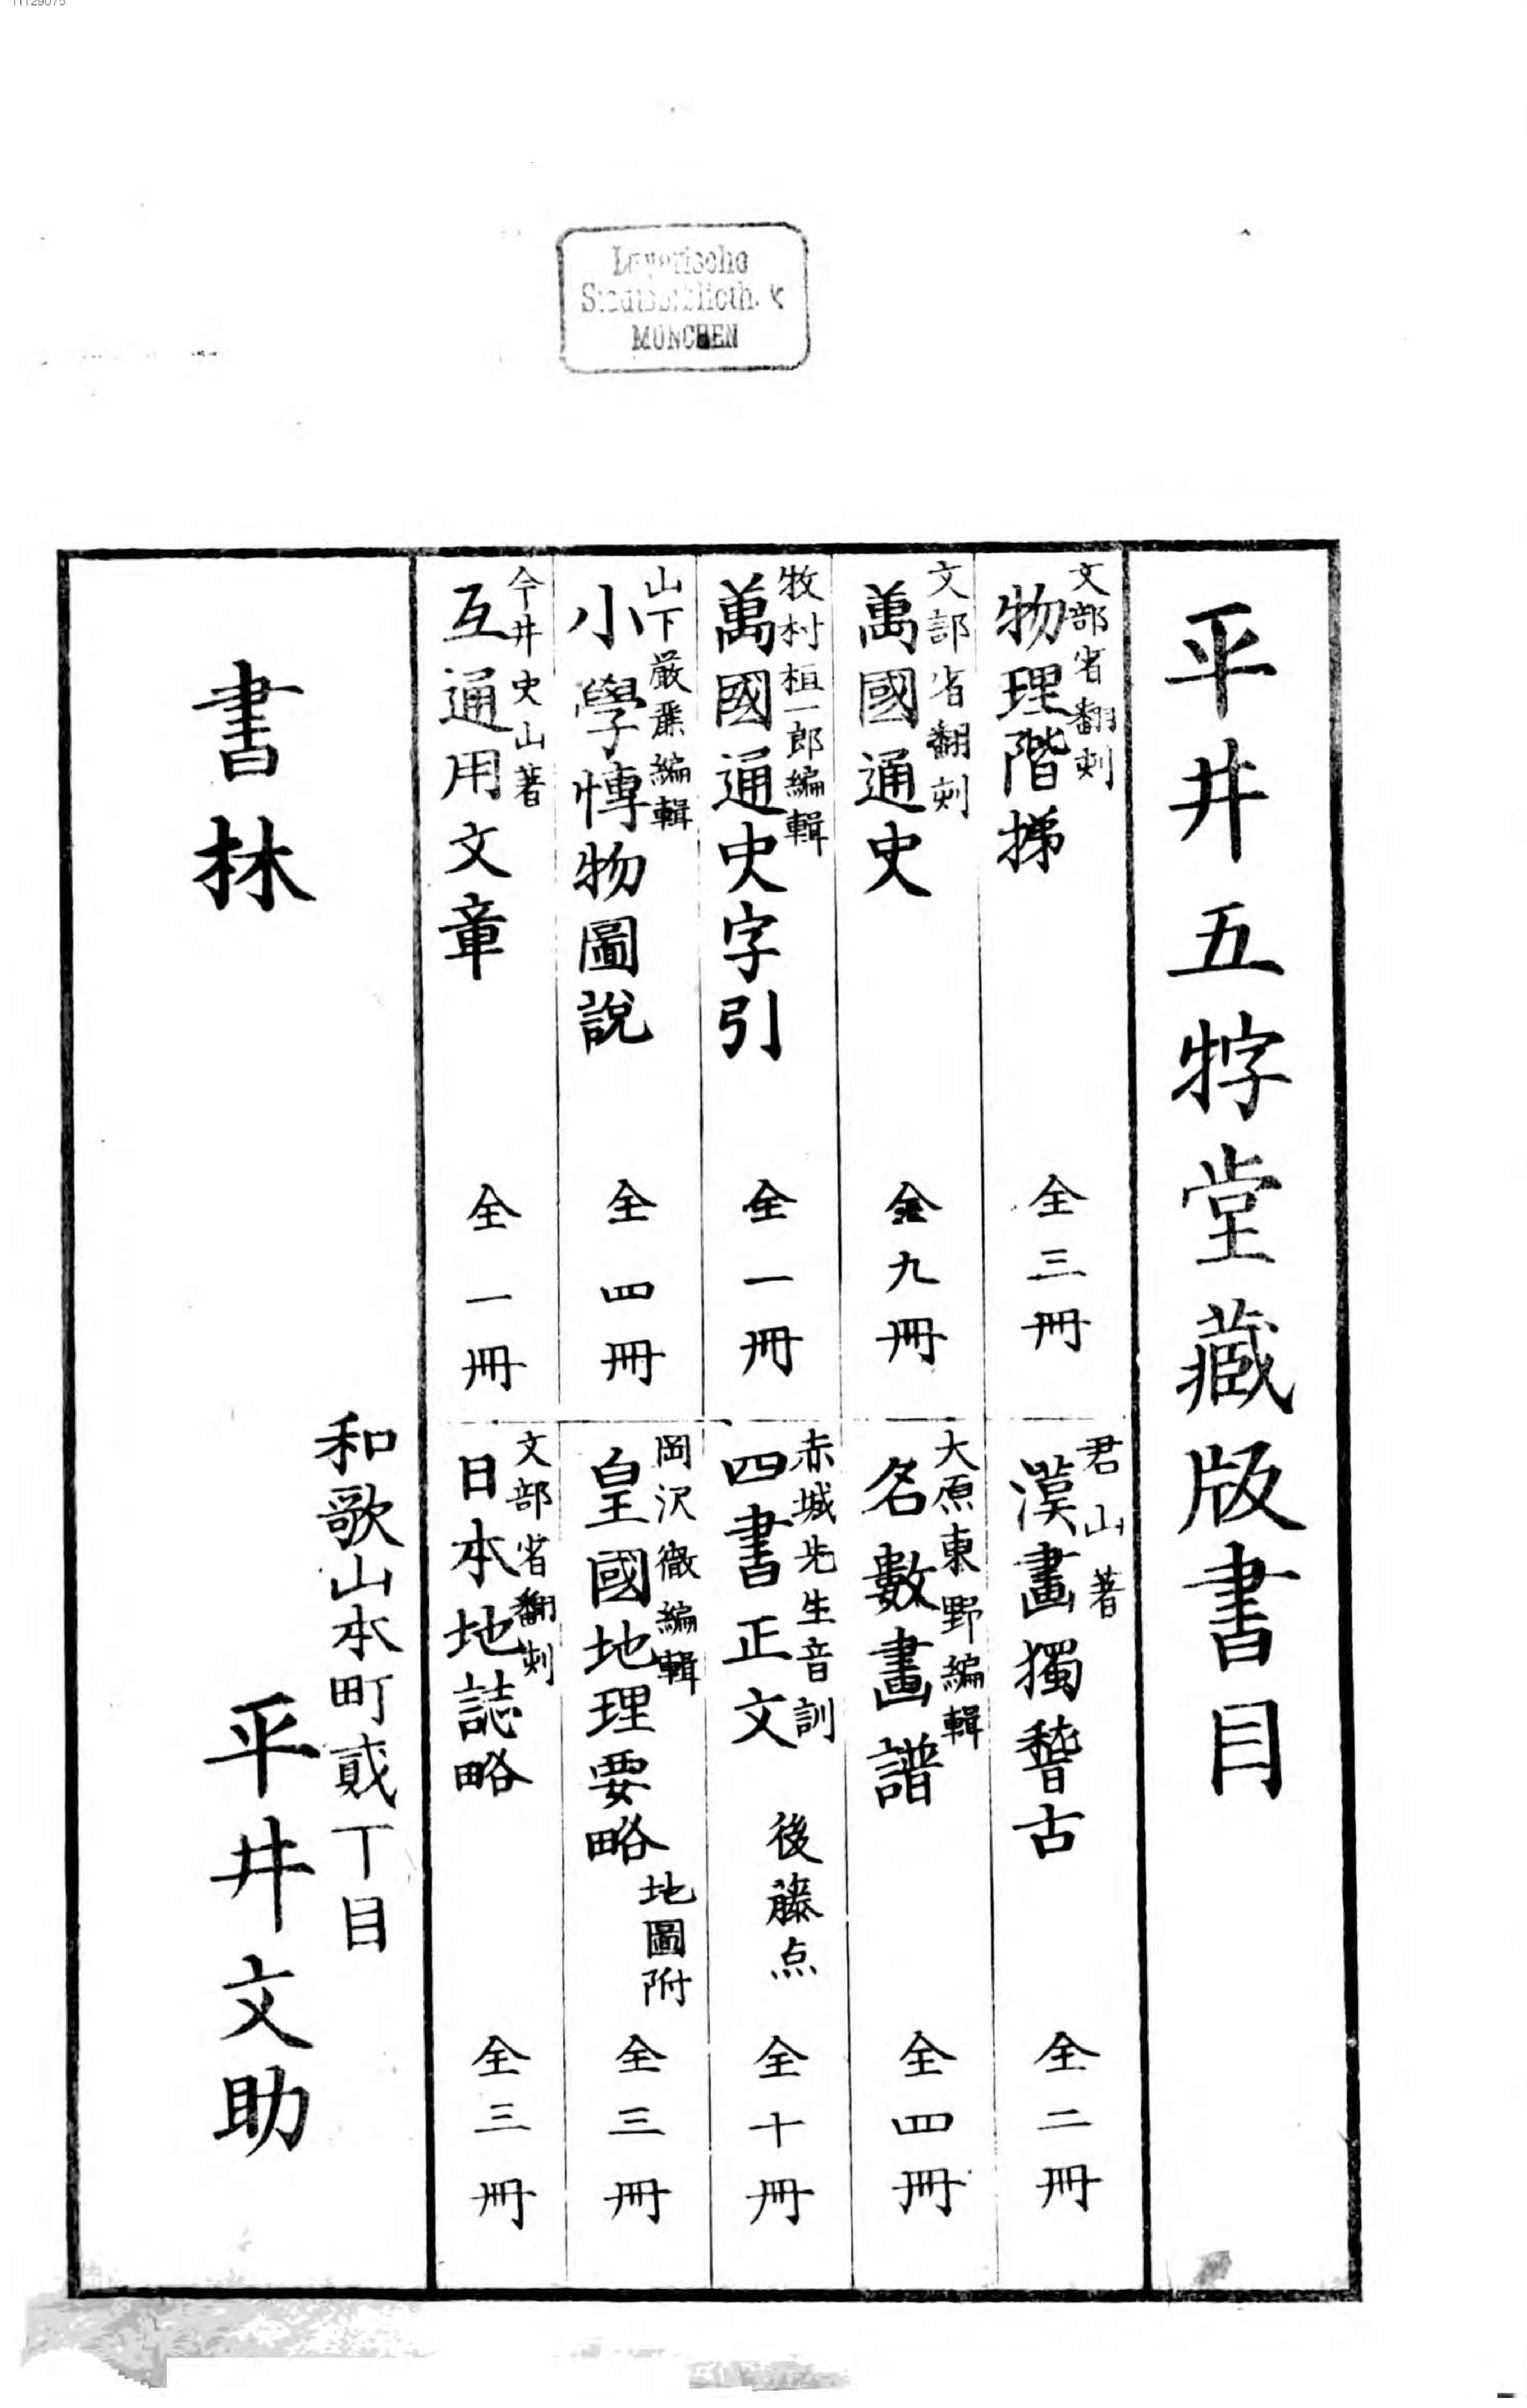 11129075
Bayerische
Staatsbibliothek
MÜNCHEN
平井五牸堂藏版書目
文部省翻刻
物理階梯
全三冊
文部省翻刻
萬國通史
全九冊
牧村植一郎編輯
萬國通史字引
全一冊
山下嚴麗編輯
小學博物圖說
全四冊
今井史山著
互通用文章
全一冊
君山著
漢畫獨稽古
全二冊
大原東野編輯
名數畫譜
全四冊
赤城先生音訓
四書正文
後藤点
全十冊
岡沢徹編輯
皇國地理要略
地圖附
全三冊
文部省翻刻
日本地誌略
全三冊
書林
和歌山本町貳丁目
平井文助